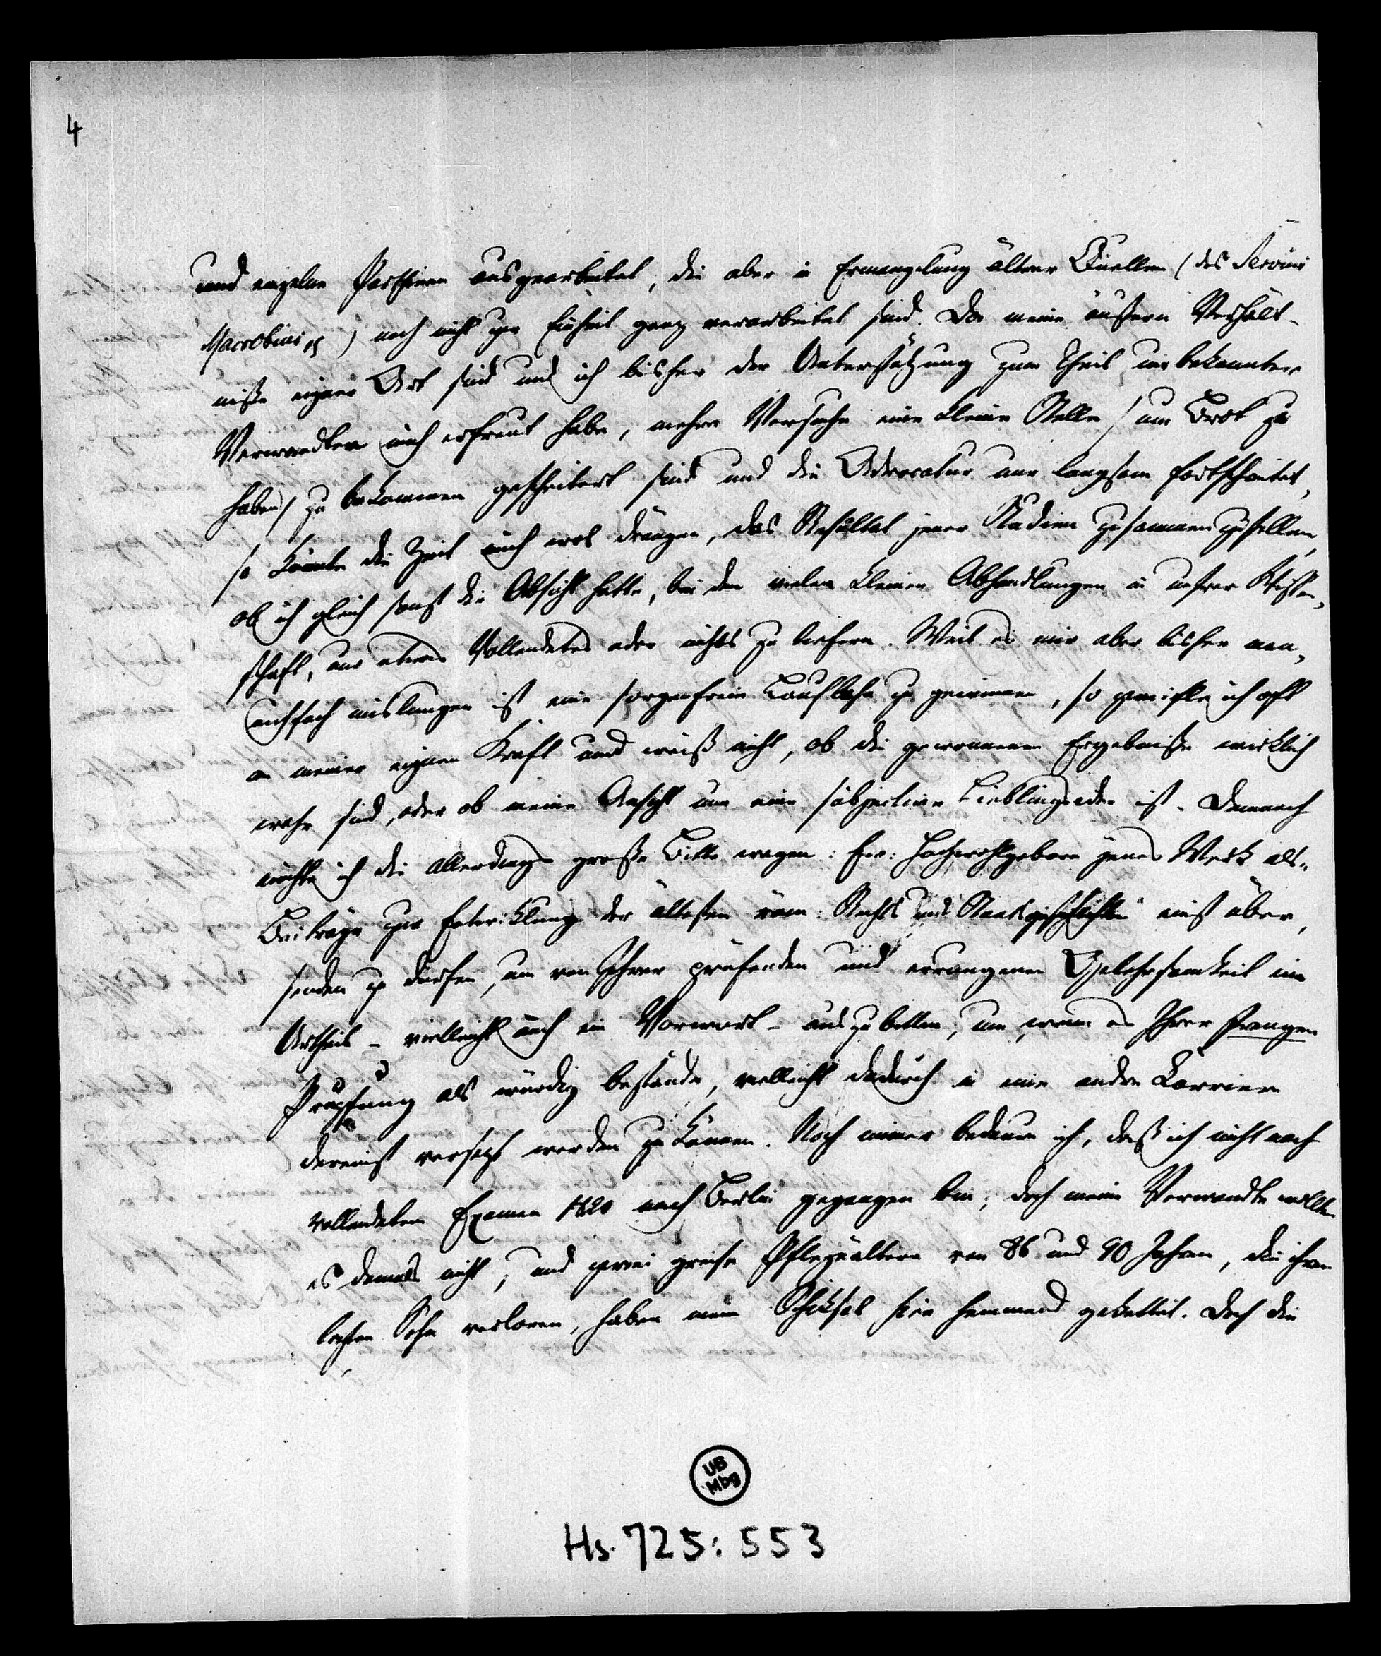 4
und einzelne Parthieen ausgearbeitet, die aber in Ermangelung älterer Quellen (des Servius
Macrobius pp) noch nicht zur Einheit ganz verarbeitet sind. Da meine äußern Verhält-
niße eigner Art sind und ich bisher der Unterstützung zum Theil unbekannter
Verwandten mich erfreut habe, mehre Versuche eine kleine Stelle (um Brot zu
haben) zu bekommen gescheitert sind und die Advocatur nur langsam fortschreitet,
so könnte die Zeit mich wol drängen, das Resultat jener Studien zusammenzustellen,
ob ich gleich sonst die Absicht hatte, bei den vielen kleinen Abhandlungen in unsrer Wissen-
schaft, nur etwas Vollendetes oder nichts zu liefern. Weil es mir aber bisher man-
nichfach mislungen ist eine sorgenfreie Laufbahn zu gewinnen, so zweifle ich oft
an meiner eignen Kraft und weiß nicht, ob die gewonnenen Ergebniße wirklich
wahr sind, oder ob meine Ansicht nur eine subjective Lieblingsidee ist. Demnach
möchte ich die allerdings große Bitte wagen: Ew: Hochwohlgeboren jenes Werk als
Beiträge zur Entwicklung der ältesten röm: Rechts und Staatsgeschichte einst über-
senden zu dürfen, um von Ihrer prüfenden und errungenen Gelehrsamkeit ein
Urtheil - vielleicht auch ein Vorwort - auszubitten, um, wenn es Ihrer strengen
Prüfung als würdig bestände, vielleicht dadurch in eine andre Carriere
dereinst versetzt werden zu können. Noch immer bedaure ich, daß ich nicht nach
vollendetem Examen 1820 nach Berlin gegangen bin; doch meine Verwandte wollten
es damals nicht, und zwei greise Pflegeältern von 86 und 90 Jahren, die ihren
letzten Sohn verloren, haben mein Schicksal hier hemmend gekettet. Doch die
UB
Mbg
Hs. 725:553